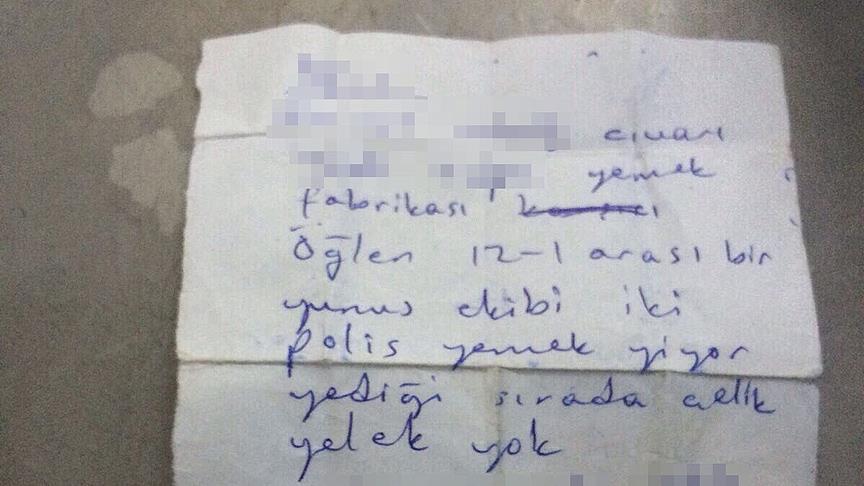 civarı
yemek
fabrikası
Öğlen 12-1 arası bir
yunus ekibi iki
polis yemek yiyor
yediği sırada çelik
yelek yok